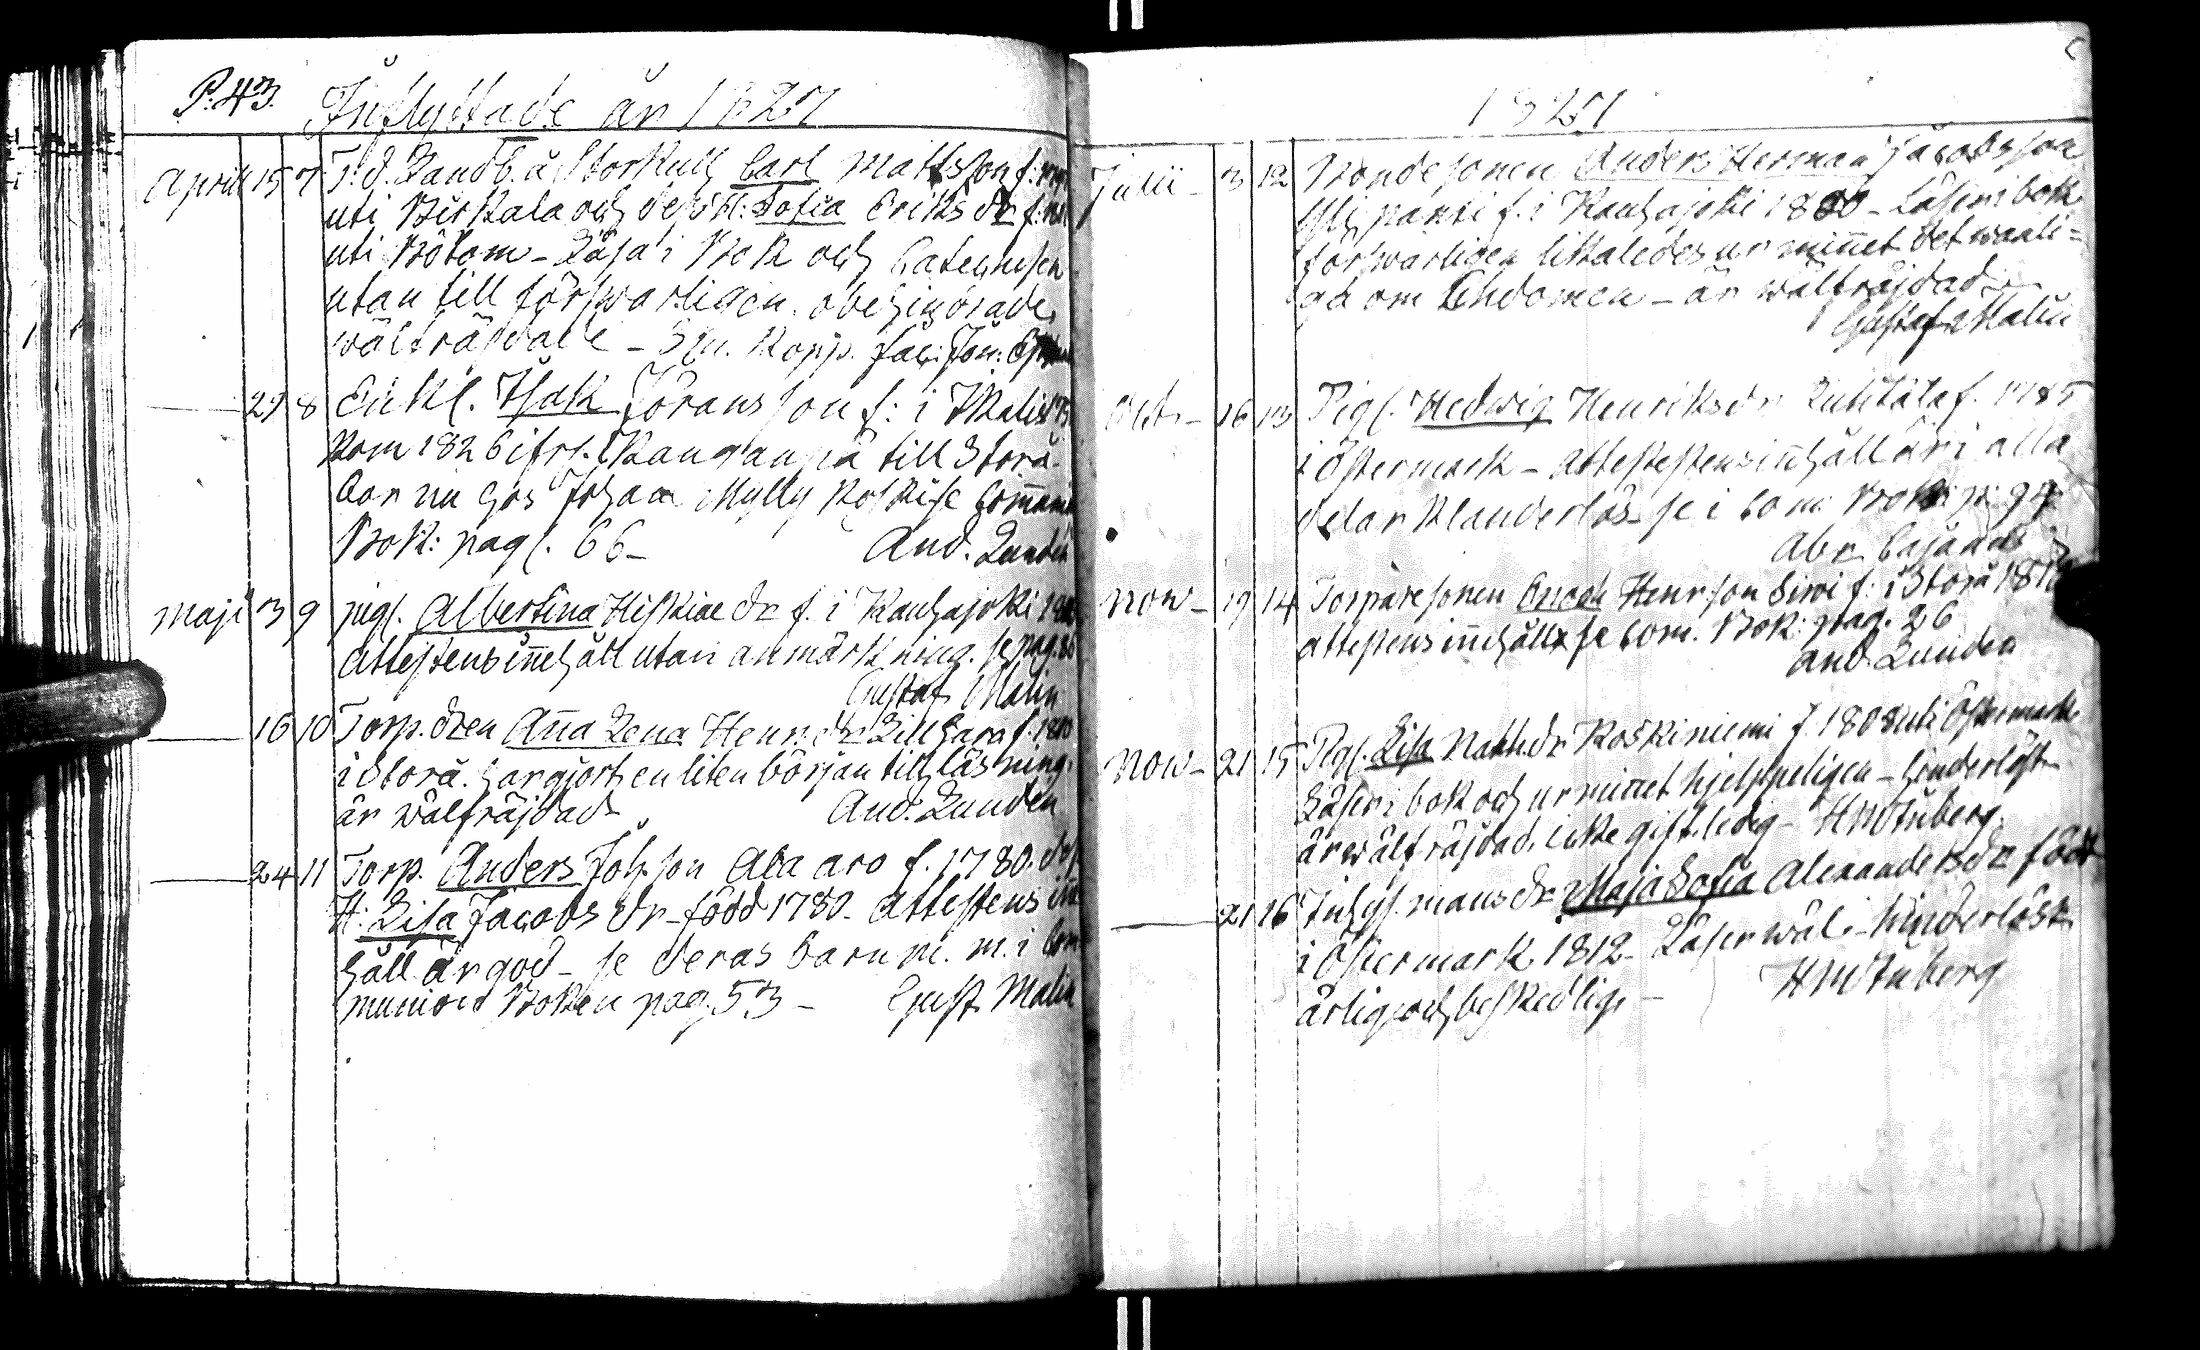 P. 43. Inflyttade år 1827
April 15 7 T. d. Landb. å Storkull Carl Mattsson f:
uti Birkala och dess H: Sofia Eriks dr f:
uti Bötom - Läsa i Bok och Catechesen
utan till förswarligen. obehindrade
wälfräjdade - Kopp. Jac: Jon:
29 8 Enkl. Isak Jöransson f: i
kom 1826 ifr. Kanganpä till Storå.
bor nu hos Johan Myllykoski se Comm
Bok: pag. 66 - And. Lunden
Maji 3 9 pig. Albertina Hiskiae dr f. i Kauhajoki
Attestens inehåll utan anmärkning. se pag.
Gustaf Malin
16 10 Torp. dren Ana Lena Henr. dr Lillhara f.
i Storå. har gjort en liten början till läsning.
är wälfräjdad And. Lunden
24 11 Torp. Anders Joh:son Ala aro f. 1780.
H: Lisa Jacobs dr född 1780. Attestens
håll är god - se deras barn m. m. i Com
munion Boken pag. 53 - Gust. Malin
1827
Julii - 3 12 Bondesonen Anders Herman Jacobsson
panki f. i Kauhajoki 1800 - Läser i bok
förswarligen likaledes ur minet det wanli=
ga om - är wälfräjdad -
Gustaf Malin
Octb - 16 13 Pig. Hedwig Henriks dr f. 1785
i Östermark - attestens inehåll är i alla
delar klanderlös se i Com: Bok: p: 94
Abr. Cajanus
Now - 19 14 Torparesonen Enoch Henrson Siwi f: i Storå
attestens inehåll se Com. Bok: pag. 26
And. Lunden
Now - 21 15 Pig. Lisa Matts dr Koskiniemi f. 1808 uti Östermark
Läser i bok och ur minet hjelpeligen - hinderlöst
är wälfräjdad. icke gift. ledig - H Wtuberg.
21 16 Inhys. mans dr Maja Sofia Alexanders dr född
i Östermark 1812 - Läser wäl - hinderlöst
ärlig och beskedlig - H Wtuberg